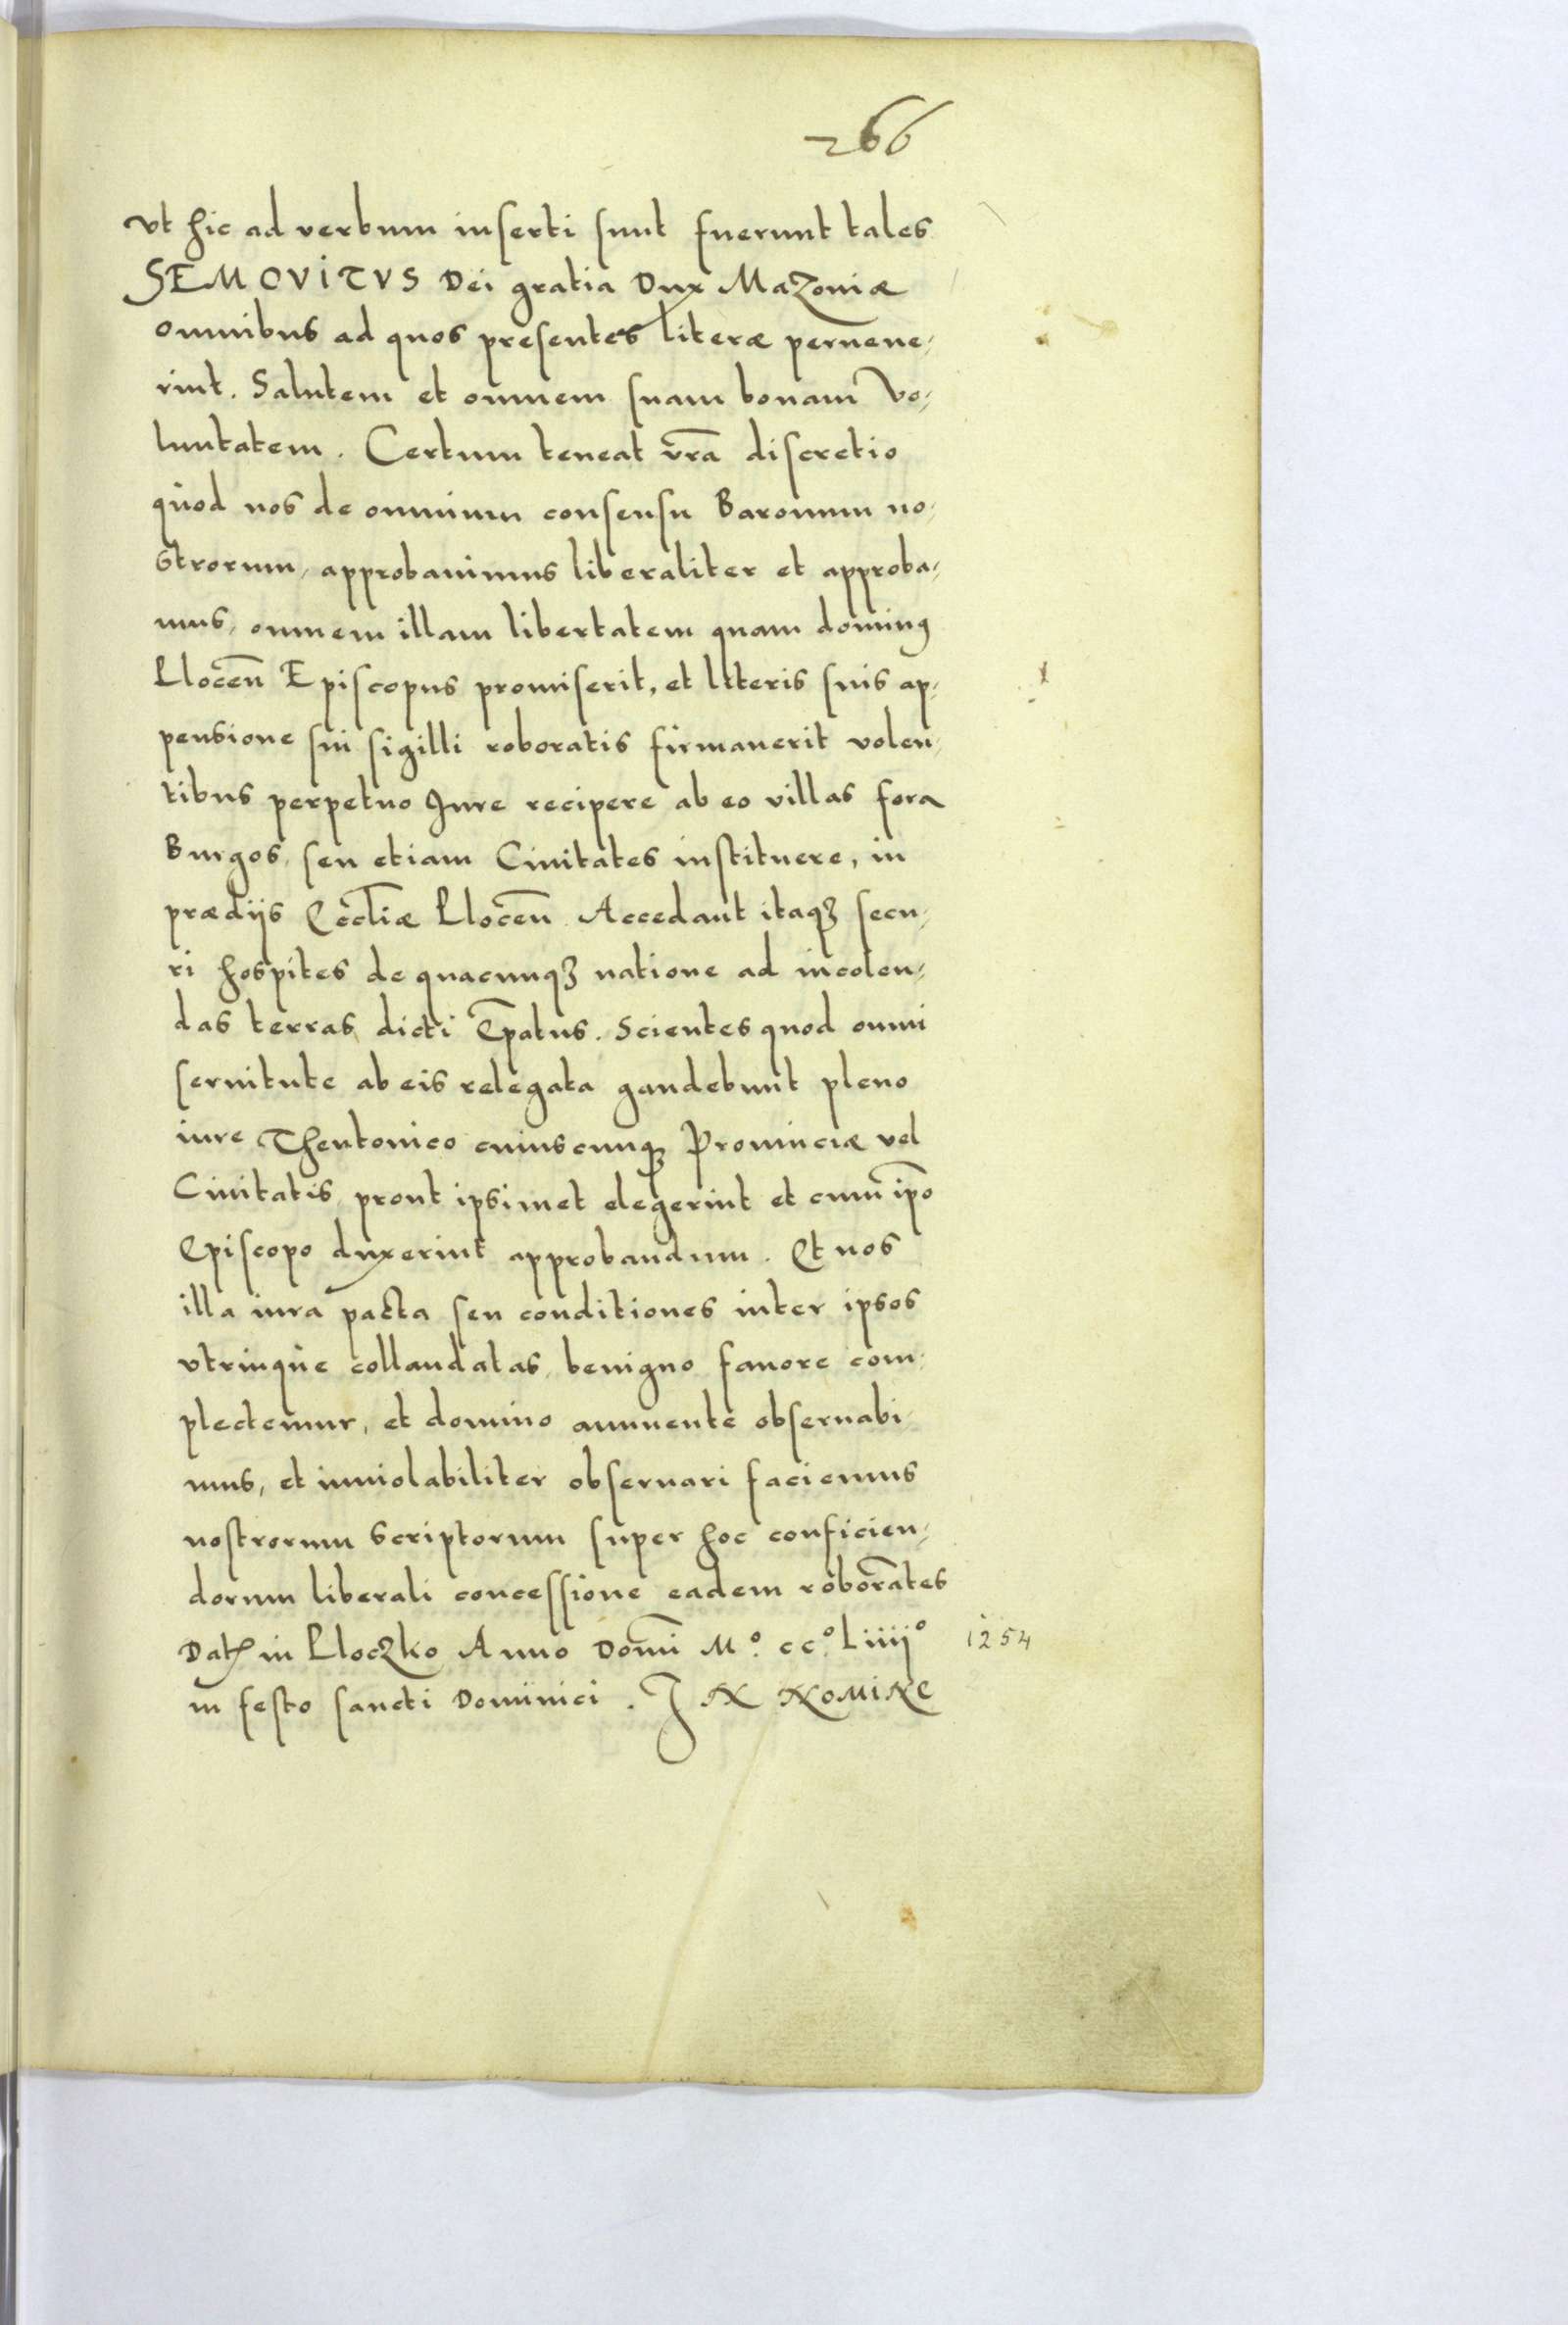 266
vt hic ad verbum inserti sunt fuerunt tales
SEMOVITVS Dei gratia Dux Mazoniæ
omnibus ad quos presentes literæ peruene,
rint. Salutem et omnem suam bonam vo,
luntatem. Certum teneat vr̃a discretio
quod nos de omnium consensu Baronum no,
strorum, approbauimus liberaliter et approba,
mus, omnem illam libertatem quam dominꝯ
Plocen̄ Episcopus promiserit, et literis suis ap,
pensione sui sigilli roboratis firmauerit volen,
tibus perpetuo Jure recipere ab eo villas fora
Burgos, seu etiam Ciuitates instituere, in
prædijs Eccl̄iæ Plocen̄. Accedant itaqꝫ secu,
ri hospites de quacunqꝫ natione ad incolen,
das terras dicti Ep̄atus. Scientes quod omni
seruitute ab eis relegata gaudebunt pleno
iure Theutonico cuiuscunqꝫ Prouinciæ vel
Ciuitatis, prout ipsimet elegerint et cum ip̄o
Episcopo duxerint approbandum. Et nos
illa iura pacta seu conditiones inter ipsos
vtrinque collaudatas, benigno fauore com,
plectemur, et domino annuente obseruabi,
mus, et inuiolabiliter obseruari faciemus
nostrorum scriptorum super hoc conficien,
dorum liberali concessione eadem robor̄ates
Datꝭ in Ploczko Anno Domı̄ M.º ccº. Liiijº 1254
in festo sancti Dominici. IN NOMINE